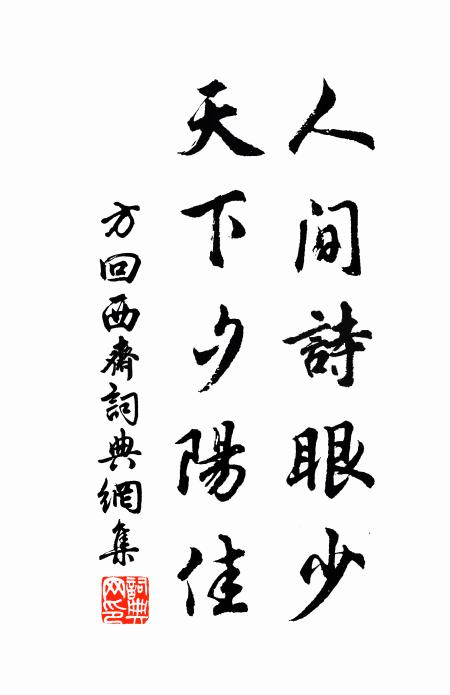 人间詩眼少
天下夕陽佳
方回西齋詞典網集
詞典网印